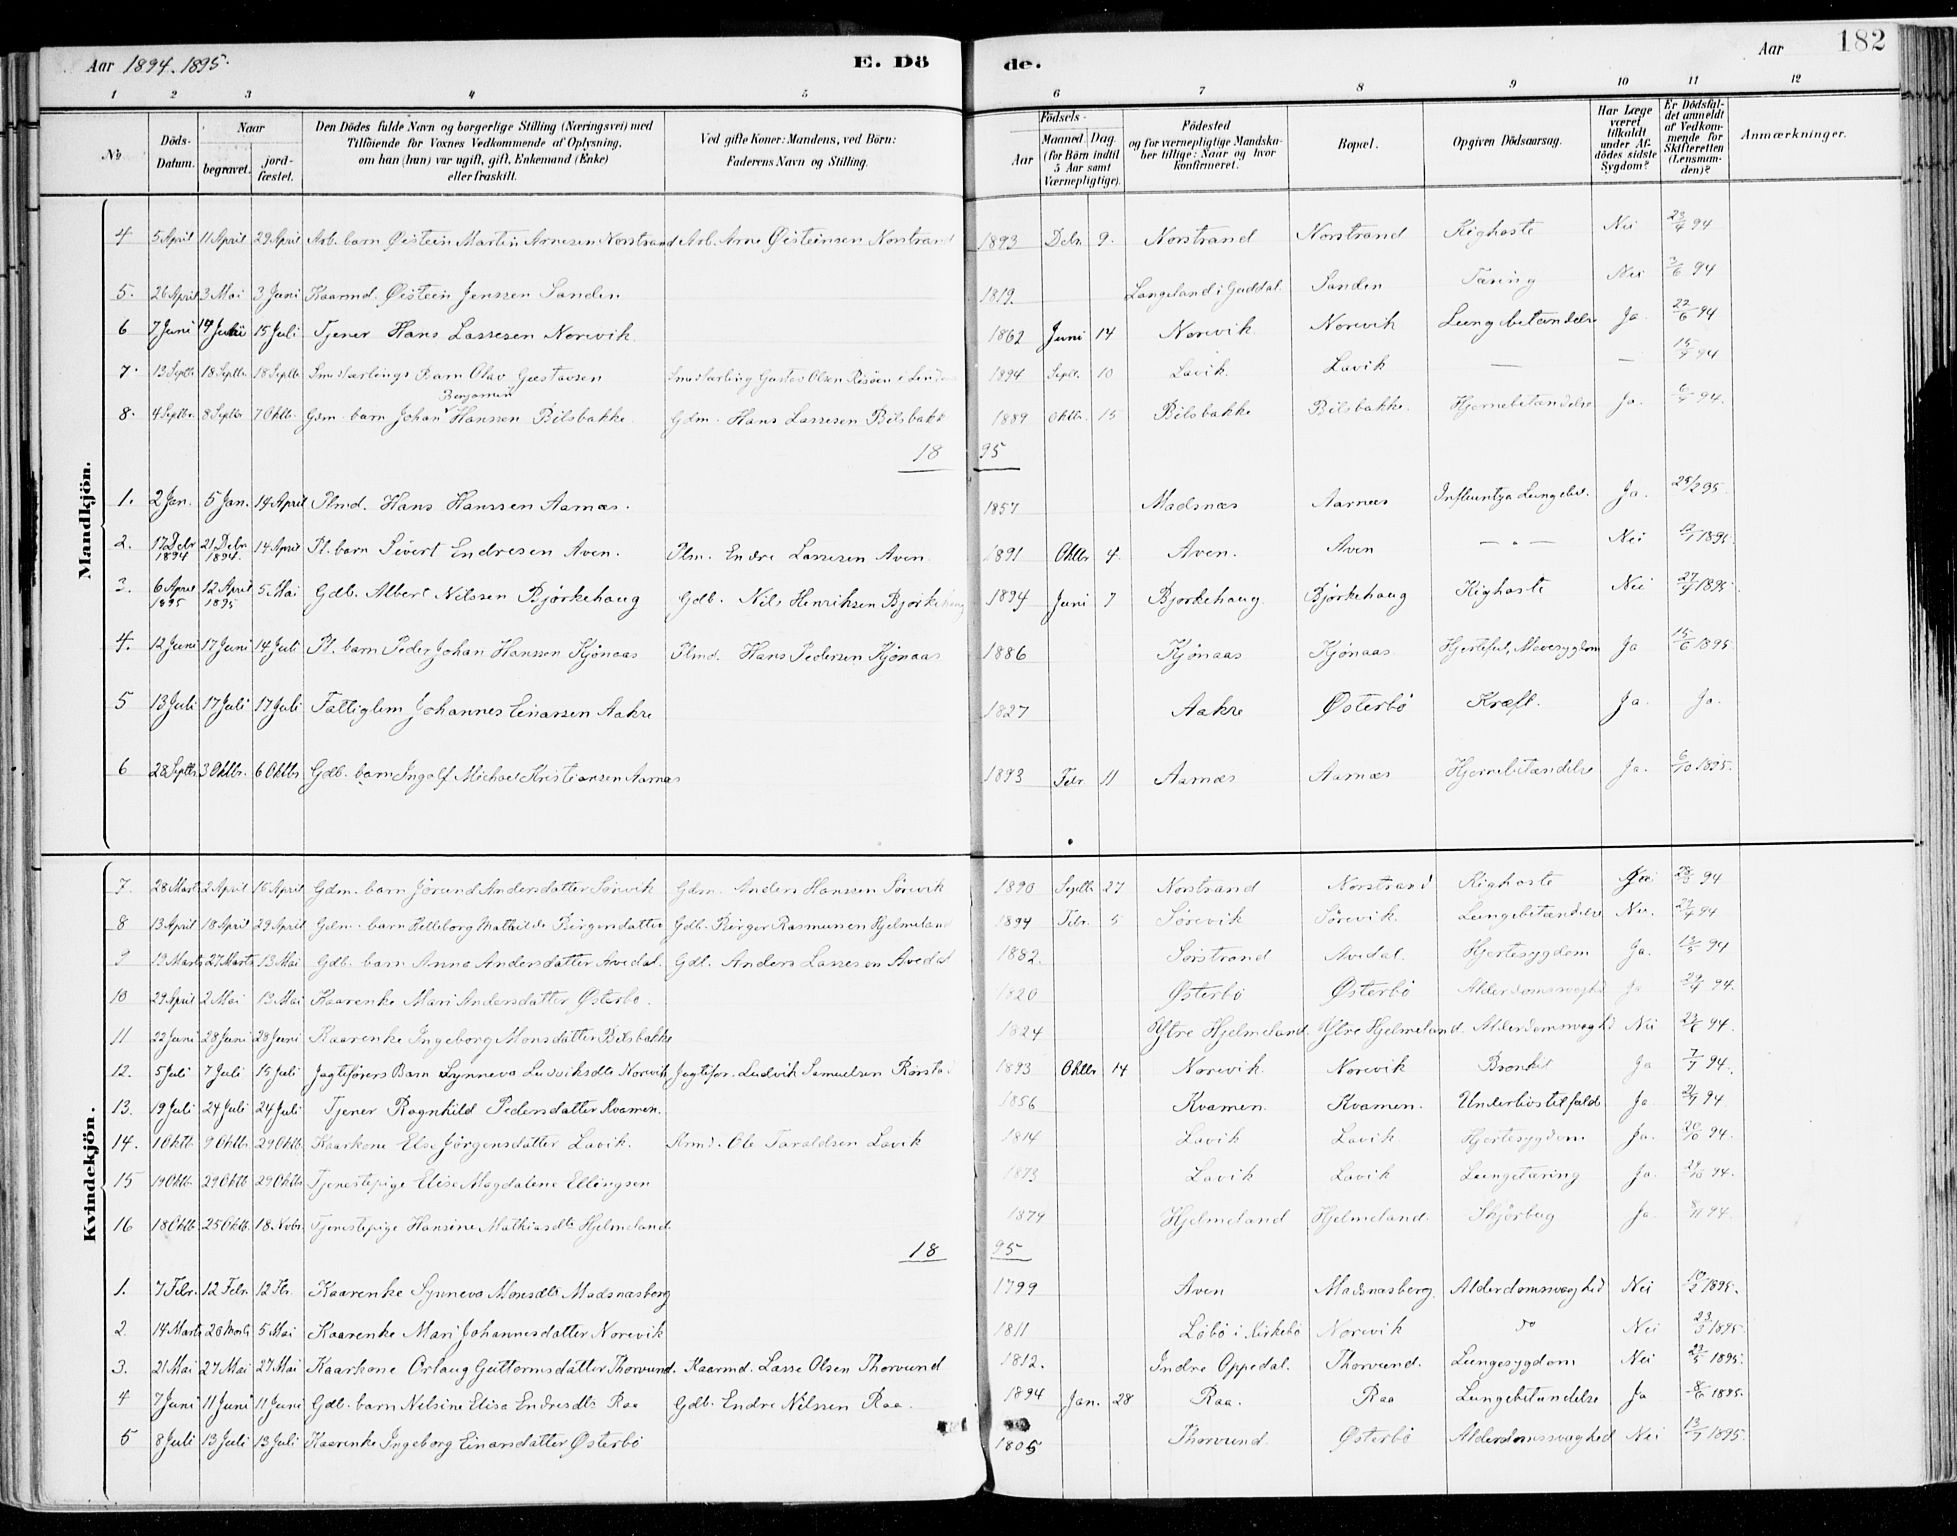 Aar 1894. 1895.
E. Dö de.
Aar
182
1 2 3 4 5 6 7 8 9 10 11 12
No.
Döds-Datum.
Naar
begravet.
jordfæstet.
Den Dödes fulde Navn og borgerlige Stilling (Næringsvei) med Tilföiende for Voxnes Vedkommende af Oplysning, om han (hun) var ugift, gift, Enkemand (Enke) eller fraskilt.
Ved gifte Koner: Mandens, ved Börn: Faderens Navn og Stilling.
Födsels-
Aar
Maaned. Dag. (for Börn indtil 5 Aar samt Værnepligtige).
Födested og for værnepligtige Mandskaber tillige: Naar og hvor konfirmeret.
Bopæl.
Opgiven Dödsaarsag.
Har Læge været tilkaldt under Afdödes sidste Sygdom?
Er Dödsfaldet anmeldt af Vedkommende for Skifteretten (Lensmanden)?
Anmærkninger.
Mandkjön.
4 5 April 11 April 29 April Arb. barn Øistein Martin Arnesen Norstrand Arb. Arne Øisteinsen Norstrand 1893 Debr. 9. Norstrand Norstrand Kighoste Nei 23/4 94
5. 26 April 3 Mai 3 Juni Kaarmd. Øistein Jenssen Sanden 1819. Langeland i Guddal. Sanden Tæring Nei 3/6 94
6 7 Juni 14 Juni 15 Juli Tjener Hans Lassesen Norevik 1862 Juni 14 Norevik Norevik Lungbetændelse Ja. 22/6 94
7. 13 Septb. 18 Septbr. 18 Septbr. Smedlærlings Barn Olav Gustavsen Smedlærling Gustav Olsen Risöen i 1894 Septb. 10 Lavik. Lavik — — 15/9 94
Benjamin
8. 4 Septbr. 8 Septbr 7 Oktb. Gdm. barn Johan Hanssen Bilsbakke. Gdm. Hans Lassesen Bilsbakk 1889 Oktbr. 15 Bilsbakke Bilsbakke. Hjernebetændelse Ja. 6/9 94.
18 95
1. 2 Jan. 5 Jan. 14 April Plmd. Hans Hanssen Aarnæs. 1857 Madsnæs Aarnæs Influentza Lungebet. Ja. 25/2 95.
2. 17 Debr 1894 21 Debr 1894. 14 April Pl. barn Sivert Endresen Aven. Plm. Endre Lassesen Aven. 1891 Oktbr 4. Aven. Aven — " — Nei 1895.
3. 6 April 1895 12 April 1895 5 Mai Gdb. Albert Nilssen Bjørkehaug Gdb. Nils Henriksen Bjørkehaug 1894 Juni 7 Bjørkehaug. Bjørkehaug Kighoste Nei 27/4 1895.
4. 12 Juni 17 Juni 14 Juli Pl. barn Peder Johan Hanssen Kjønaas Plmd. Hans Pedersen Kjønaas 1886 Kjønaas Kjønaas. Hjertefeil, Mavesygdom Ja 15/6 1895.
5 13 Juli 17 Juli 17 Juli Fattiglem Johannes Einarsen Aakre 1827 Aakre Østerbö Kræft. Ja. Ja.
6 28 Septbr 3 Oktbr. 6 Oktbr Gdb. barn Ingolf Michael Kristiansen Aarnæs 1893 Febr 11 Aarnæs Aarnæs Hjernebetændelse Ja. 6/10 1895.
Kvindekjön.
7. 28 Marts 2 April 15 April Gdm. barn Jörund Andersdatter Sörevik Gdm. Anders Hanssen Sörevik 1890 Septbr 27 Norstrand Norstrand Kighoste Nei 94
8 13 April 18 April 29 April Gdm. barn Helleborg Mathilde Birgersdatter Gdb. Birger Rasmussen Hjelmeland 1894 Febr. 5 Sörevik Sörevik. Lungebetændelse Nei. 94
9 19 Marts 27 Marts 13 Mai Gdb. barn Anna Andersdatter Avedal. Gdb. Anders Lassesen Avedal 1882. Sörstrand Avedal. Hjertesygdom Ja. 94
10 29 April 2 Mai 13 Mai Kaarenke Mari Andersdatter Østerbö. 1820 Østerbö Østerbö Alderdomssvaghd Ja 29/4 94.
11 22 Juni 28 Juni 28 Juni Kaarenke Ingeborg Monsdatter Bilsbakke 1824 Ytre Hjelmeland. Ytre Hjelmeland. Alderdomssvaghd Nei 94.
12. 5 Juli 7 Juli 15 Juli Jagtförers Barn Synneva Ludviksdtr Norevik Jagtför. Ludvik Samuelsen Rörstad 1893 Oktbr 14 Norevik. Norevik Bronkit Ja 94.
13. 19 Juli 24 Juli 24 Juli Tjener Ragnhild Pedersdatter Kvamen. 1856 Kvamen. Kvamen. Underlivstilfælde Ja. 94.
14. 1 Oktb. 9 Oktbr. 29 Oktb. Kaarkone Else Jörgensdatter Lavik. Krmd. Ole Taraldsen Lavik 1814 Lavik Lavik. Hjertesygdom Ja. 94.
15 19 Oktb. 29 Oktb 29 Oktbr Tjenestepige Elise Magdalene Ellingsen 1873 Lavik Lavik Lungetæring Ja. 94.
16 18 Oktb 25 Oktb. 18. Nvbr. Tjenestepige Hansine Mathiasdtr Hjelmeland 1874 Hjelmeland Hjelmeland. Skjörbug Ja. 8/11 94.
18 95
1. 7 Febr. 12 Febr. 12 Fbr. Kaarenke Synneva Monsdtr Madsnæsberg 1799 Aven Madsnæsberg. Alderdomssvaghed Nei 10/2 1895.
2. 14 Marts 20 Marts 5 Mai Kaarenke Mari Johannesdatter Norevik 1811 Löbö i Kirkebö Norevik do Nei 23/3 1895.
3. 21 Mai 27 Mai 27 Mai Kaarkone Orlaug Guttormsdatter Thorvund. Kaarmd. Lasse Olsen Thorvund 1812. Indre Oppedal. Thorvund. Lungesygdom Nei 1895.
4 7 Juni 11 Juni 11 Juni Gdb. barn Nelsine Elisa Endresdtr Raa Gdb. Endre Nilssen Raa. 1894 Jan. 28 Raa. Raa Lungebetændelse Ja 8/6 1895.
5 8 Juli 13 Juli 13 Juli Kaarenke Ingeborg Einarsdatter Østerbö 1805 Thorvund. Østerbö Alderdomssvaghed Nei 13/7 1895.